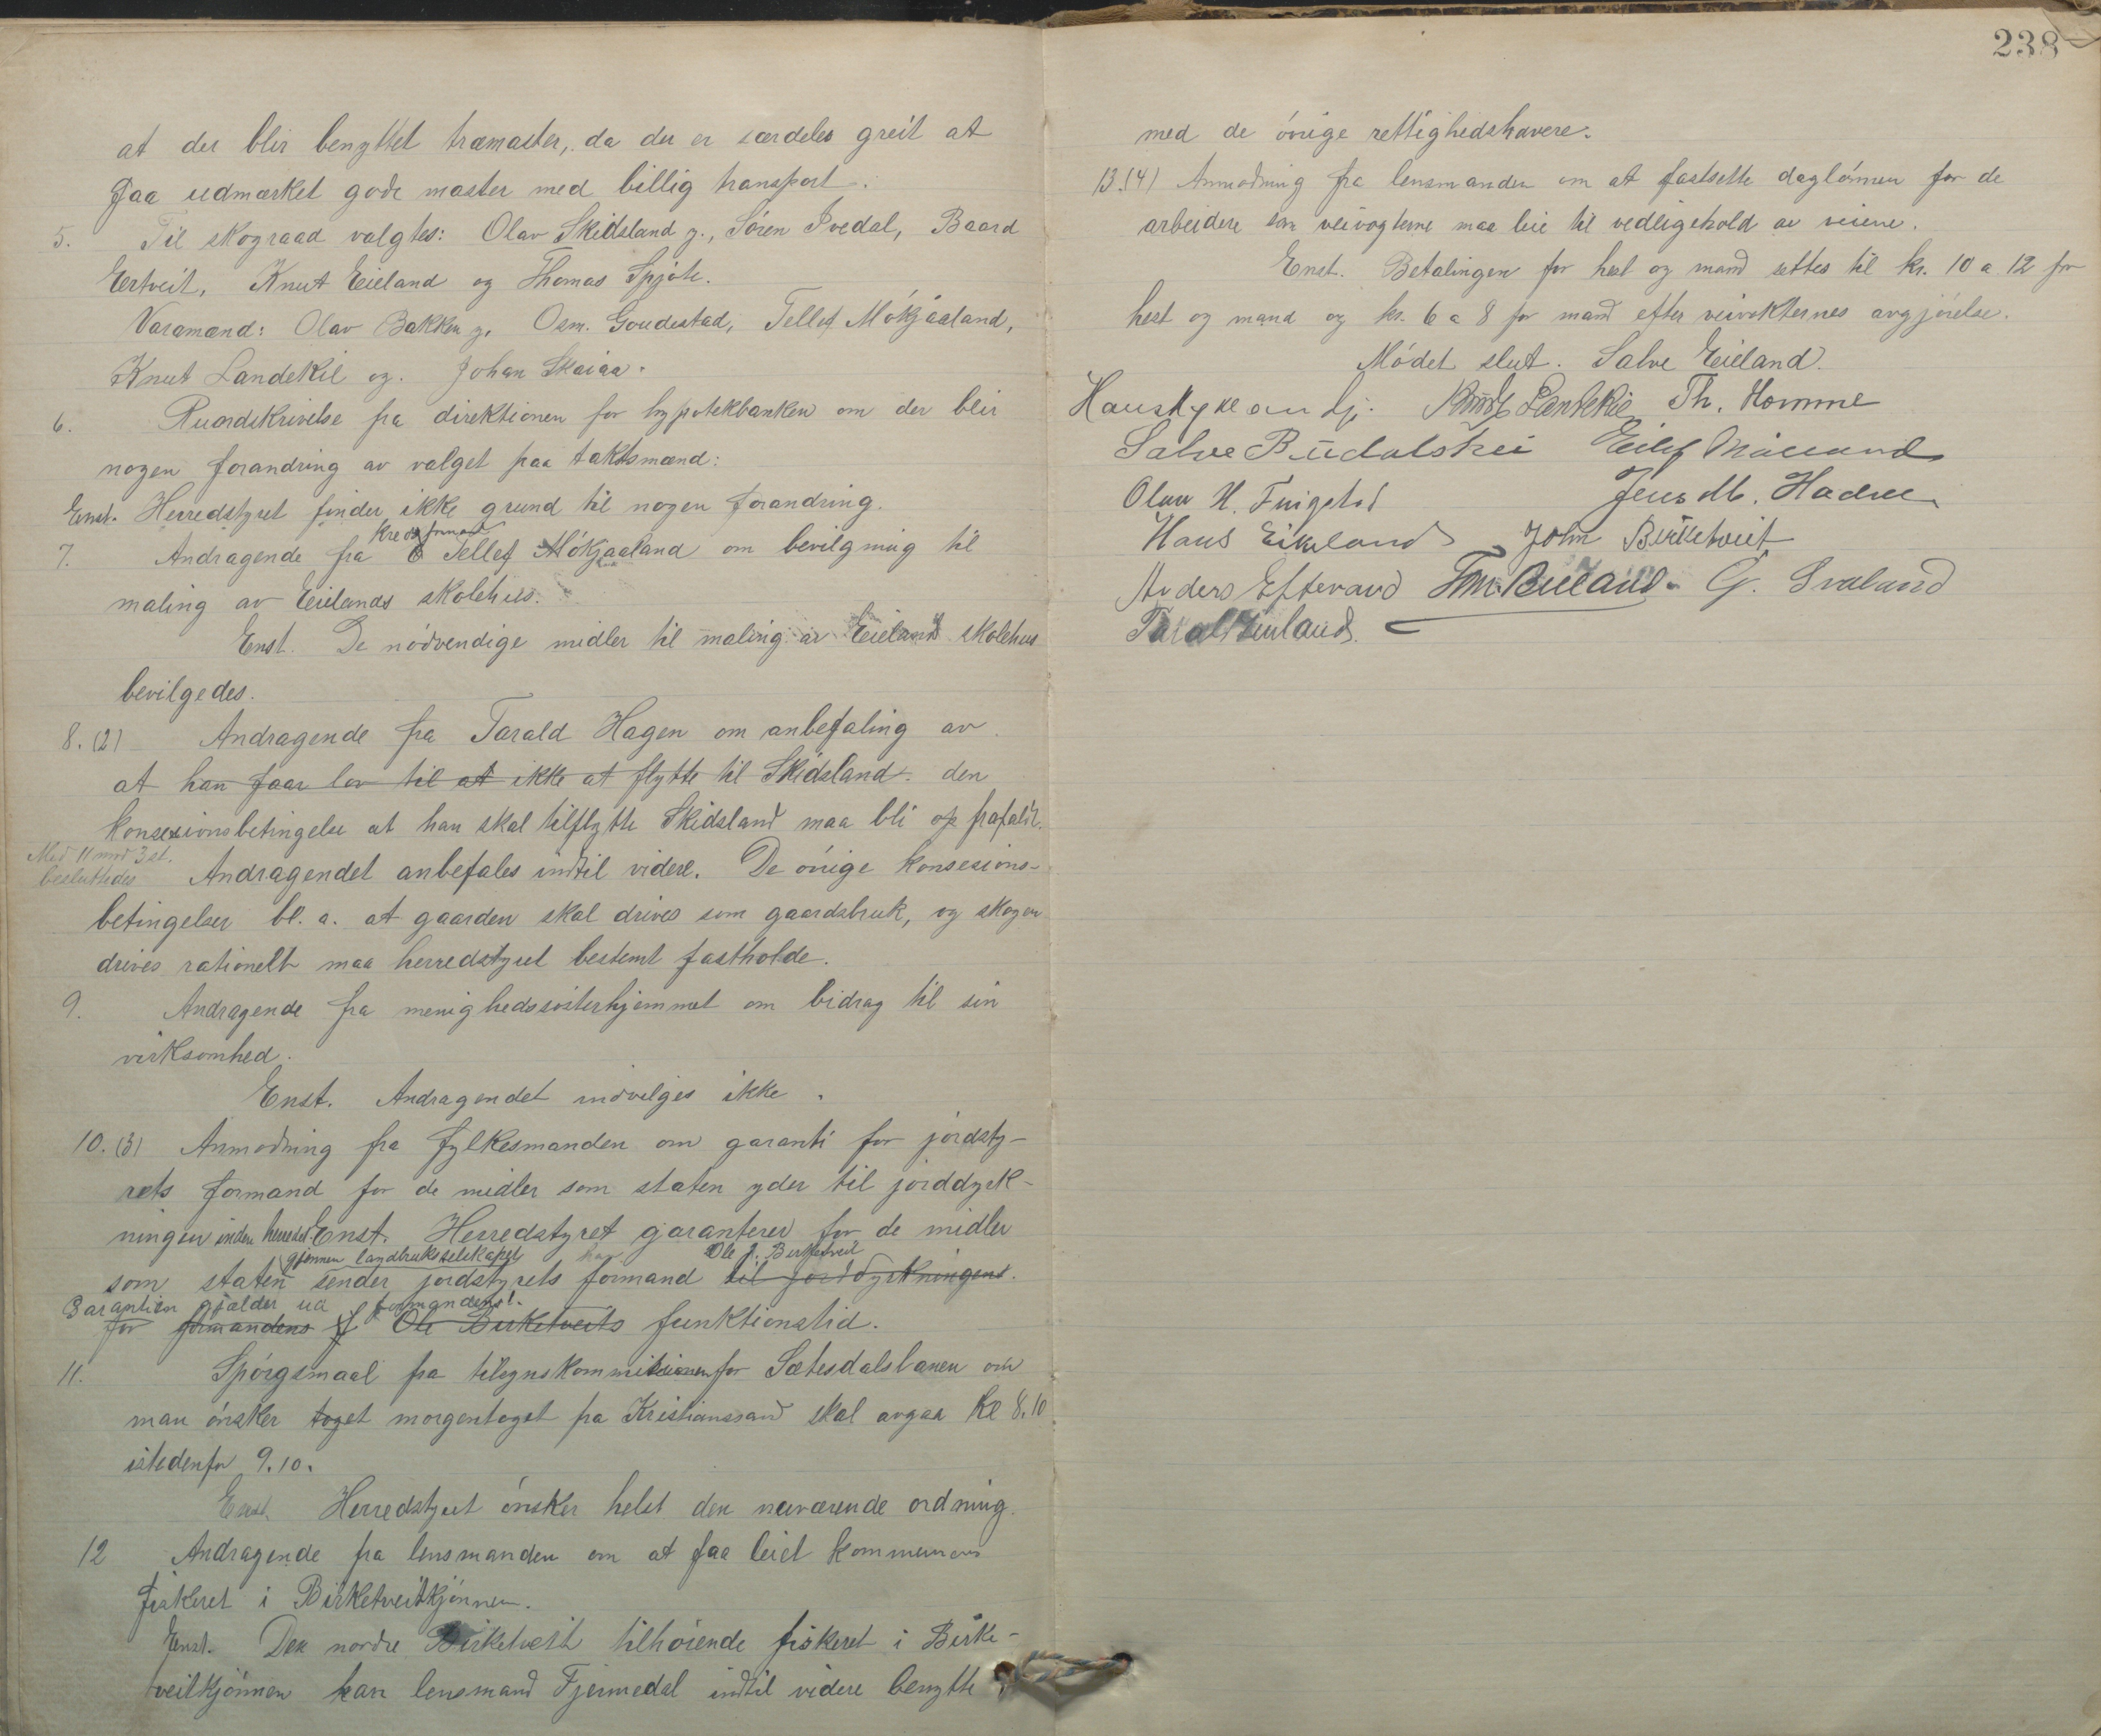 at der blir benyttet træmaster, da der er særdeles greit at
faa udmærket gode master med billig transport.
5. Til skograad valgtes: Olav Skidsland y., Sören Ivedal, Baard
Ertveit, Knut Eieland og Thomas Spjote.
Varamænd: Olav Bakken y, Osm. Goudestad, Tellef Mókjaaland,
Knut Landekil og. Johan Skaiaa.
6. Rundskrivelse fra direktionen for hypotekbanken om der blir
nogen forandring av valget paa takstmænd:
Enst. Herredstyret finder ikke grund til nogen forandring.
kredsformand
7. Andragende fra Tellef Mókjaaland om bevilgning til
maling av Eielands skolehus.
Enst. De nódvendige midler til maling av Eielands skolehus
bevilgedes.
8. (2) Andragende fra Tarald Hagen om anbefaling av
at han faar lov til at ikke at flytte til Skidsland. den
konsesionsbetingelse at han skal tilflytte Skidsland maa bli op frafaldt.
Med 11 mod 3 st.
besluttedes Andragendet anbefales indtil videre. De óvrige konsesions-
betingelser bl. a. at gaarden skal drives som gaardsbruk, og skogen
drives rationelt maa herredstyret bestemt fastholde.
9. Andragende fra menighedssósterhjemmet om bidrag til sin
virksomhed.
Enst. Andragendet indvilges ikke.
10. (3) Anmodning fra fylkesmanden om garanti for jordsty-
rets formand for de midler som staten yder til jorddyrk-
ningen inden herredet. Enst. Herredstyret garanterer for de midler
gjennem landbruksselskapet Ole J. Birketveit
som staten sender jordstyrets formand til jorddyrkningens.
Garantien gjælder formandens
for formandens Ole Birketveits funktionstid.
11. Spórgsmaal fra tilsynskommisionen for Sætesdalsbanen om
man ónsker toget morgentoget fra Kristianssand skal avgaa kl 8.10
istedenfor 9.10.
Enst. Herredstyret ónsker helst den nuværende ordning.
12 Andragende fra lensmanden om at faa leiet kommunens
fiskeret i Birketveitkjónnen.
Enst. Den nordre Birketveit tilhórende fiskeret i Birke-
tveitkjónnen kan lensmand Fjermedal indtil videre benytte
238
med de óvrige rettighedshavere.
13.(4) Anmodning fra lensmanden om at fastsette daglónnen for de
arbeidere som veivogterne maa leie til vedligehold av veiene.
Enst. Betalingen for hest og mand settes til kr. 10 a 12 for
hest og mand og kr. 6 a 8 for mand efter veivokternes avgjórelse.
Módet slut. Salve Eieland.
Knut Landekil Th. Homme
Salve Büdalshei Eilef
Olav H. Jens M.
Hans Eikeland John Birketveit
Anders Eftevand G. Svaland
Tarald